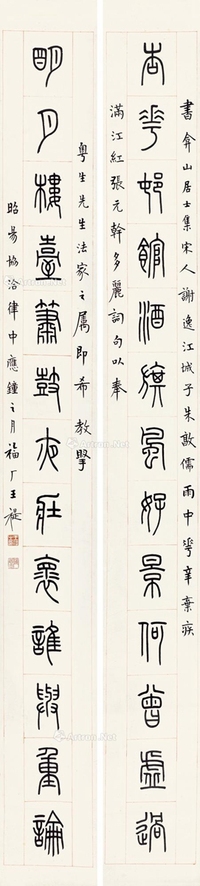 書弇山居士集宋人謝逸江城子朱敦儒雨中華辛棄疾
杏華邨館酒旗風好景何曾虛過
滿江紅張元幹多麗詞句以奉
粵生先生法家之屬即希教擥
明月樓臺簫鼓夜壯褱誰與重論
昭昜協洽律中應鐘之月福厂王禔